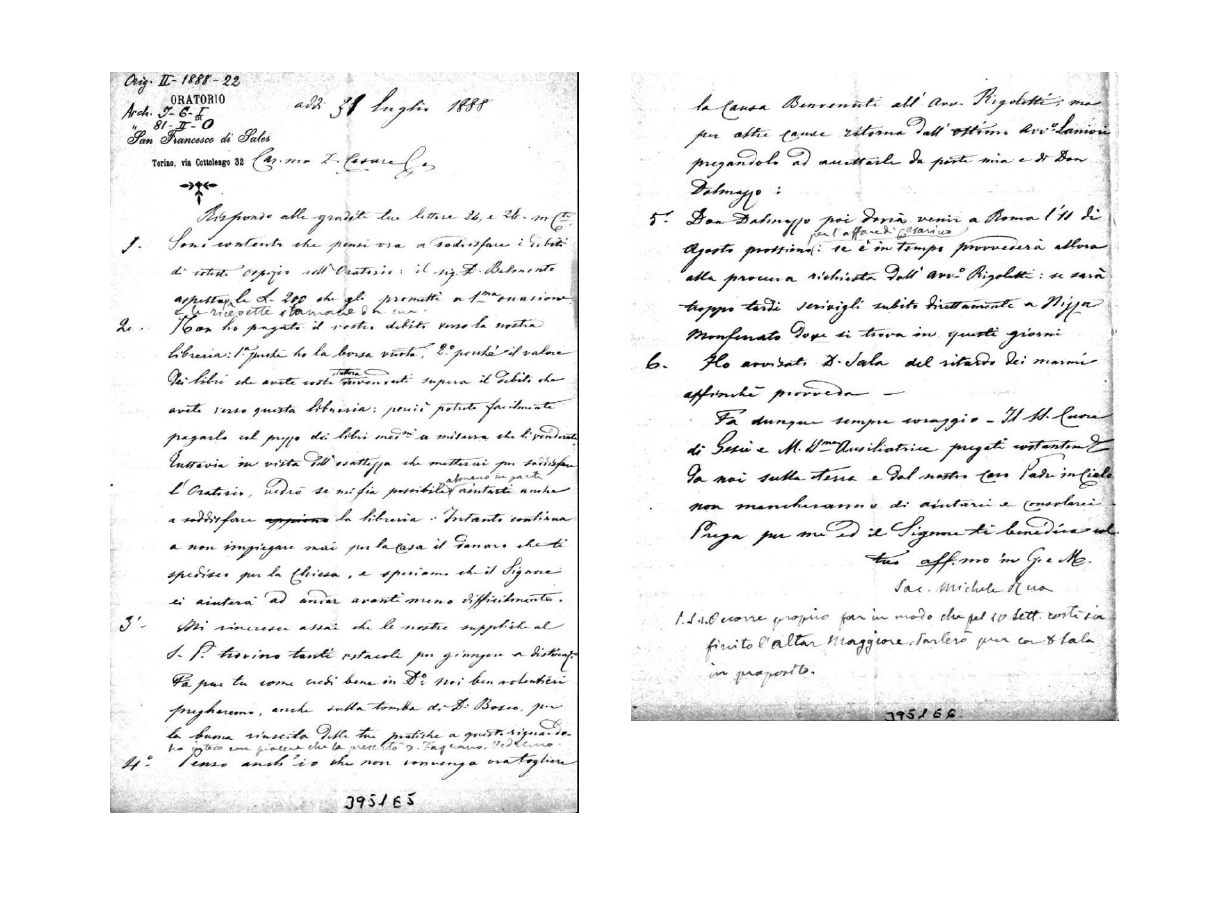 Orig. II - 1888 - 22
ORATORIO
Arch. 9-6-I
81-II-O
San Francesco di Sales
Torino, via Cottolengo 32
addì 31 luglio 1888
Car.mo D. Cesare
Rispondo alle gradite tue lettere 24, e 26
1. Sono contento che pensi ora a soddisfare i debiti
di cotesto ospizio coll'Oratorio: il sig. D. Belmonte
aspetta le L. 200 che gli prometti a 1ma occasione
e le ricevette stamane
2. Non ho pagato il vostro debito verso la nostra
libreria: 1° perché ho la borsa vuota, 2° perché il valore
dei libri che avete costì tuttora invenduti supera il debito che
avete verso questa libreria: perciò potete facilmente
pagarlo col prezzo dei libri medmi a misura che li venderete
Tuttavia in vista dell'esattezza che metterai per soddisfare
l'Oratorio, vedrò se mi fia possibile almeno in parte aiutarti anche
a soddisfare la libreria: Intanto continua
a non impiegare mai per la Casa il danaro che ti
spedisco per la Chiesa, e speriamo che il Signore
ci aiuterà ad andar avanti meno difficilmente.
3° Mi rincresce assai che le nostre suppliche al
S. P. trovino tanti ostacoli per giungere a
Fa pur tu come credi bene in Dº noi ben volentieri
pregheremo, anche sulla tomba di D. Bosco, per
la buona riuscita delle tue pratiche a questo riguardo
ho inteso con piacere che la D. Fagnano. Vedremo.
4° Penso anch'io che non convenga ora togliere
3951E5
la causa Benvenuti all'Avv. Rigoletti; ma
per altre cause ritorna dall'ottimo Avvº Lanion
pregandolo ad accettarle da parte mia e di Don
Dalmazzo:
5° Don Dalmazzo poi dovrà venir a Roma l'11 di
Agosto prossimo per l'affare di Cesarino: se è in tempo provvederà allora
alla procura richiesta dall'Avvº Rigoletti: se sarà
troppo tardi scrivigli subito direttamente a Nizza
Monferrato dove si trova in questi giorni
6. Ho avvisato D. Sala del ritardo dei marmi
affinché provveda —
Fa dunque sempre coraggio - Il S. Cuore
di Gesù e M. SSma Ausiliatrice pregati costantemte
da noi sulla terra e dal nostro caro Padre in Cielo
non mancheranno di aiutarci e consolarci
Prega per me ed il Signore ti benedica col
tuo aff.mo in G. e M.
Sac. Michele Rua
P.S. Occorre proprio far in modo che pel 10 Sett. costì sia
finito l'altar Maggiore. Parlerò pur con D Sala
in proposito.
3951E6